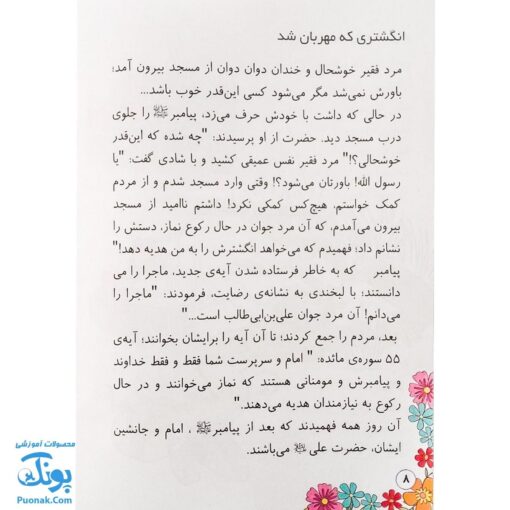 انگشتری که مهربان شد
مرد فقیر خوشحال و خندان دوان دوان از مسجد بیرون آمد؛
باورش نمی‌شد مگر می‌شود کسی این‌قدر خوب باشد...
در حالی که داشت با خودش حرف می‌زد، پیامبرﷺ را جلوی
درب مسجد دید. حضرت از او پرسیدند: "چه شده که این‌قدر
خوشحالی؟!" مرد فقیر نفس عمیقی کشید و با شادی گفت: "یا
رسول الله! باورتان می‌شود؟! وقتی وارد مسجد شدم و از مردم
کمک خواستم، هیچ‌کس کمکی نکرد! داشتم ناامید از مسجد
بیرون می‌آمدم، که آن مرد جوان در حال رکوع نماز، دستش را
نشانم داد؛ فهمیدم که می‌خواهد انگشترش را به من هدیه دهد!"
پیامبر که به خاطر فرستاده شدن آیه‌ی جدید، ماجرا را می
دانستند؛ با لبخندی به نشانه‌ی رضایت، فرمودند: "ماجرا را
می‌دانم! آن مرد جوان علی‌بن‌ابی‌طالب است..."
بعد، مردم را جمع کردند؛ تا آن آیه را برایشان بخوانند؛ آیه‌ی
۵۵ سوره‌ی مائده: " امام و سرپرست شما فقط و فقط خداوند
و پیامبرش و مومنانی هستند که نماز می‌خوانند و در حال
رکوع به نیازمندان هدیه می‌دهند."
آن روز همه فهمیدند که بعد از پیامبرﷺ ، امام و جانشین
ایشان، حضرت علی می‌باشند.
۸
محصولات آموزشی
پونک
Puonak.Com